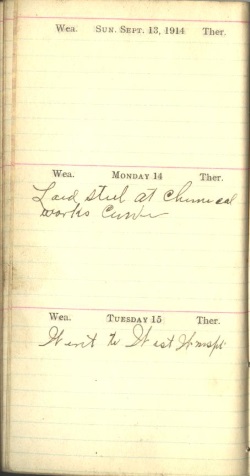 Wea. SUN. SEPT. 13, 1914 Ther.
Wea. MONDAY 14 Ther.
Laid steel at Chemical
works
Wea. TUESDAY 15 Ther.
Went to West